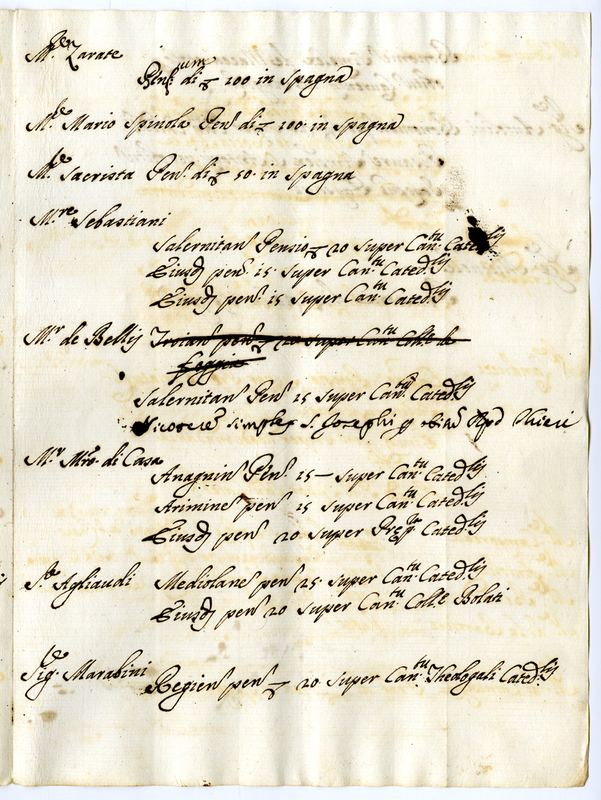 Mr.en Zarate
Pens.um di 100 in Spagna
M.re Mario Spinola Pen.e di 100 in Spagna
M.re Sacrista Pen.e di 50. in Spagna
M.re Sebastiani
Salernitan. Pensio 20 super Can.tu Cated.lij
Eiusd. pen. 15 super Can.tu Cated.lij
Eiusd. pen. 15 super Can.tu Cated.lij
M.r de Bellis Troian. pen. 20 super Can.tu Coll.e de
foggia
Salernitan. Pen. 15 super Can.tu Cated.lij
simplex S. Josephi
M.r Mro. di Casa
Anagnin. Pen. 15 – super Can.tu Cated.lij
Arimine. pen. 15 super Can.tu Cated.lij
Eiusd. pen. 20 super Cated.lij
S.re Agliaudi Mediolane. pen. 25 super Can.tu Cated.lij
Eiusd. pen. 20 super Can.tu Coll.e Bolati
Sig.re Marabini
Regien. pen. 20 super Can.tu Theologali Cated.lij